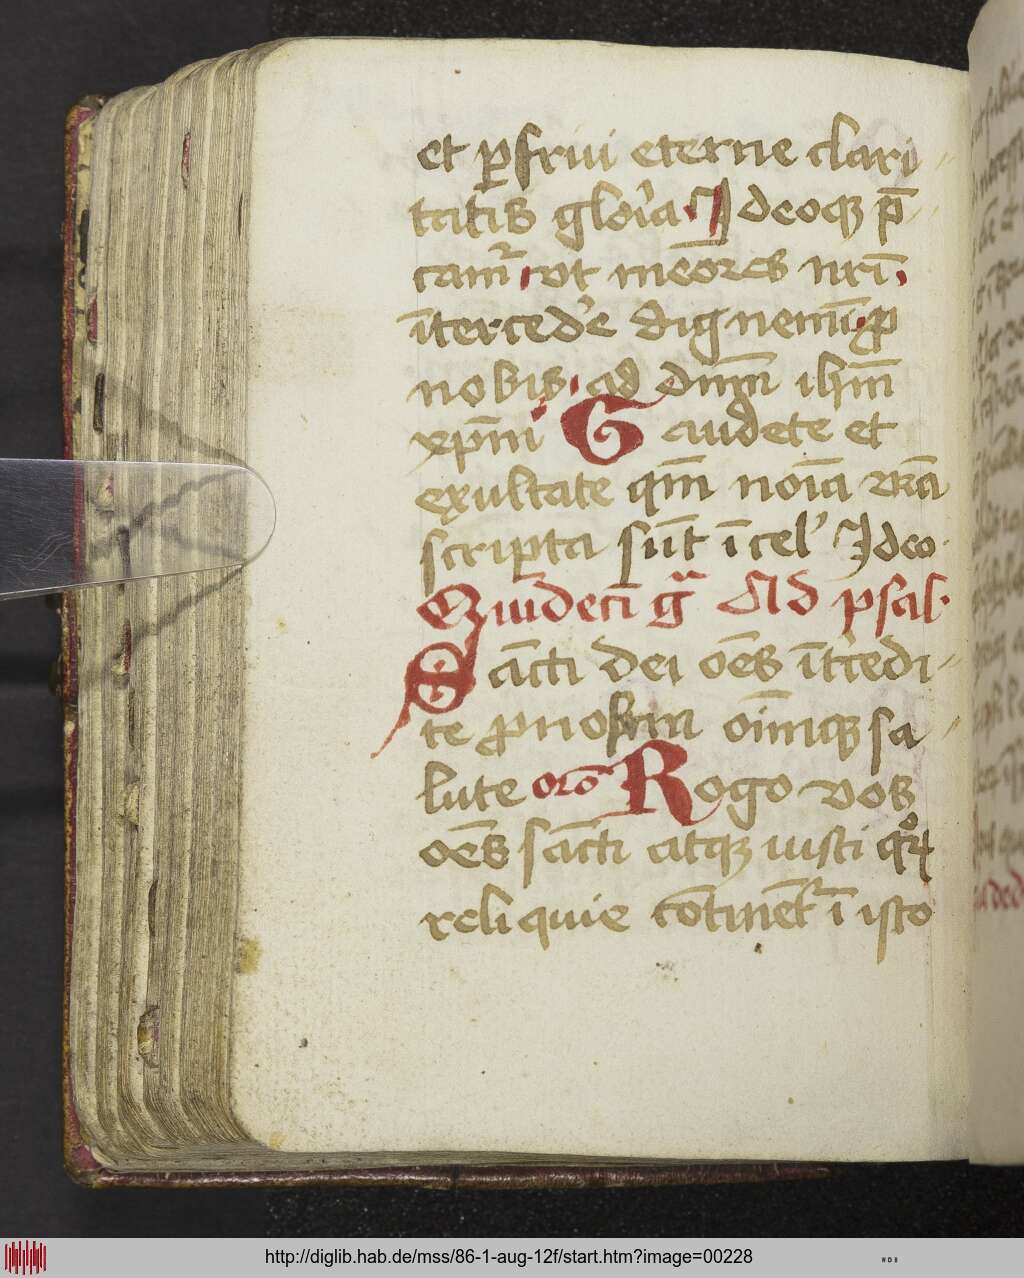 et ꝑfrui eterne clari
tatis glor̄ia. Ideoqꝫ p̄
camᷣ vt meōres nr̄i.
īterced'e dignemīi ꝓ
nobis. ad dn̄m ihm̄
xp̄m Gaudete et
exultate qm̄ noīa vr̄a
scripta sūt ī cel' Ideo
dei oēs īt'cedi
te ꝓ nobis oīmqꝫ sa
lute orō Rogo vos
oēs sācti atqꝫ iusti qͦrꝫ
reliquie cōtinēt᷑ ī isto
http://diglib.hab.de/mss/86-1-aug-12f/start.htm?image=00228